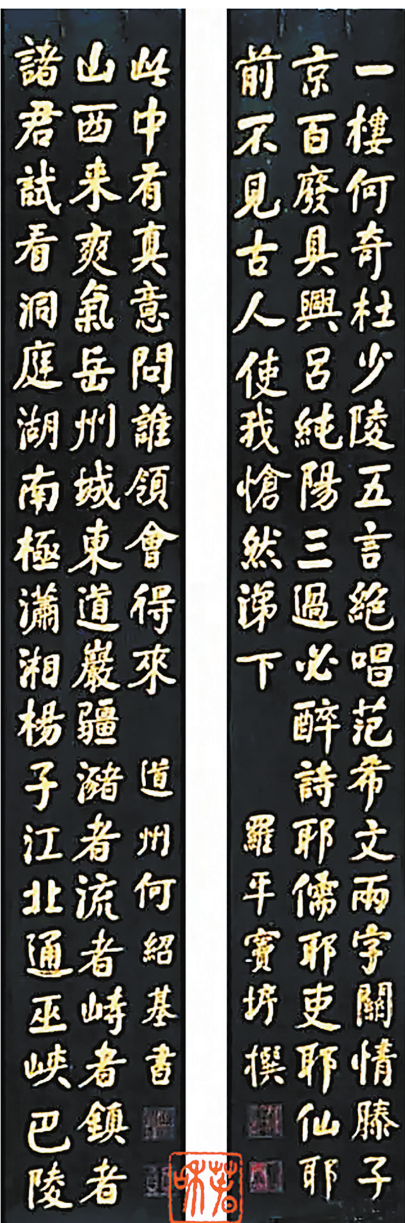 一樓何奇杜少陵五言絕唱范希文兩字關情滕子
京百廢具興呂純陽三過必醉詩耶儒耶吏耶仙耶
前不見古人使我愴然涕下
羅平竇垿撰
諸君試看洞庭湖南極瀟湘楊子江北通巫峽巴陵
山西来爽氣岳州城東道巖疆潴者流者峙者鎮者
此中有真意問誰領會得來
道州何紹基書